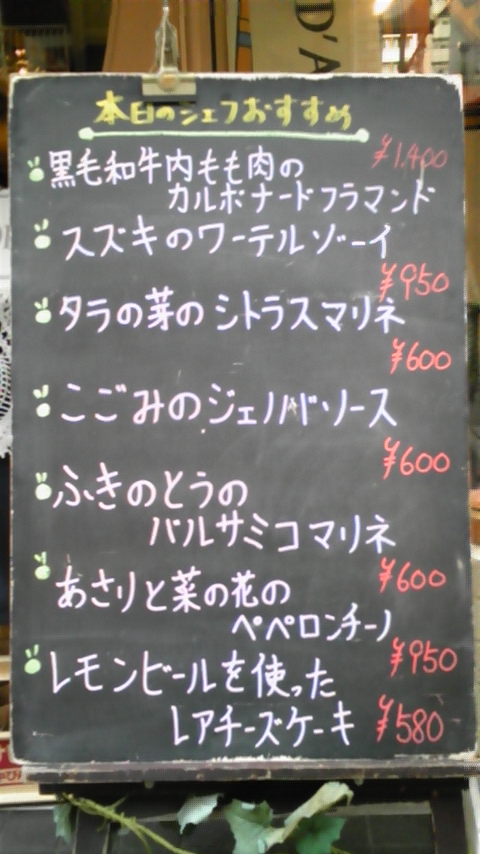 D'A
本日のシェフおすすめ
黒毛和牛内もも肉の ¥1,400
カルボナードフラマンド
スズキのワーテルゾーイ
¥950
タラの芽のシトラスマリネ
¥600
こごみのジェノバソース
¥600
ふきのとうの
バルサミコマリネ
¥600
あさりと菜の花の
ペペロンチーノ
¥950
レモンビールを使った
レアチーズケーキ ¥580